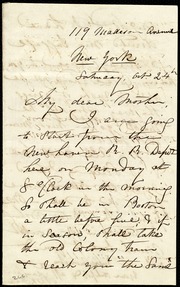 119 Madison Avenue
New York
Saturday Oct 24th
My dear Mother,
I am going
to start from the
New haven R. R. Depot
here, on Monday at
8 o'clock in the morning.
So shall be in Boston
a little before five, & if
in season, shall take
the old Colony train
& reach you the same